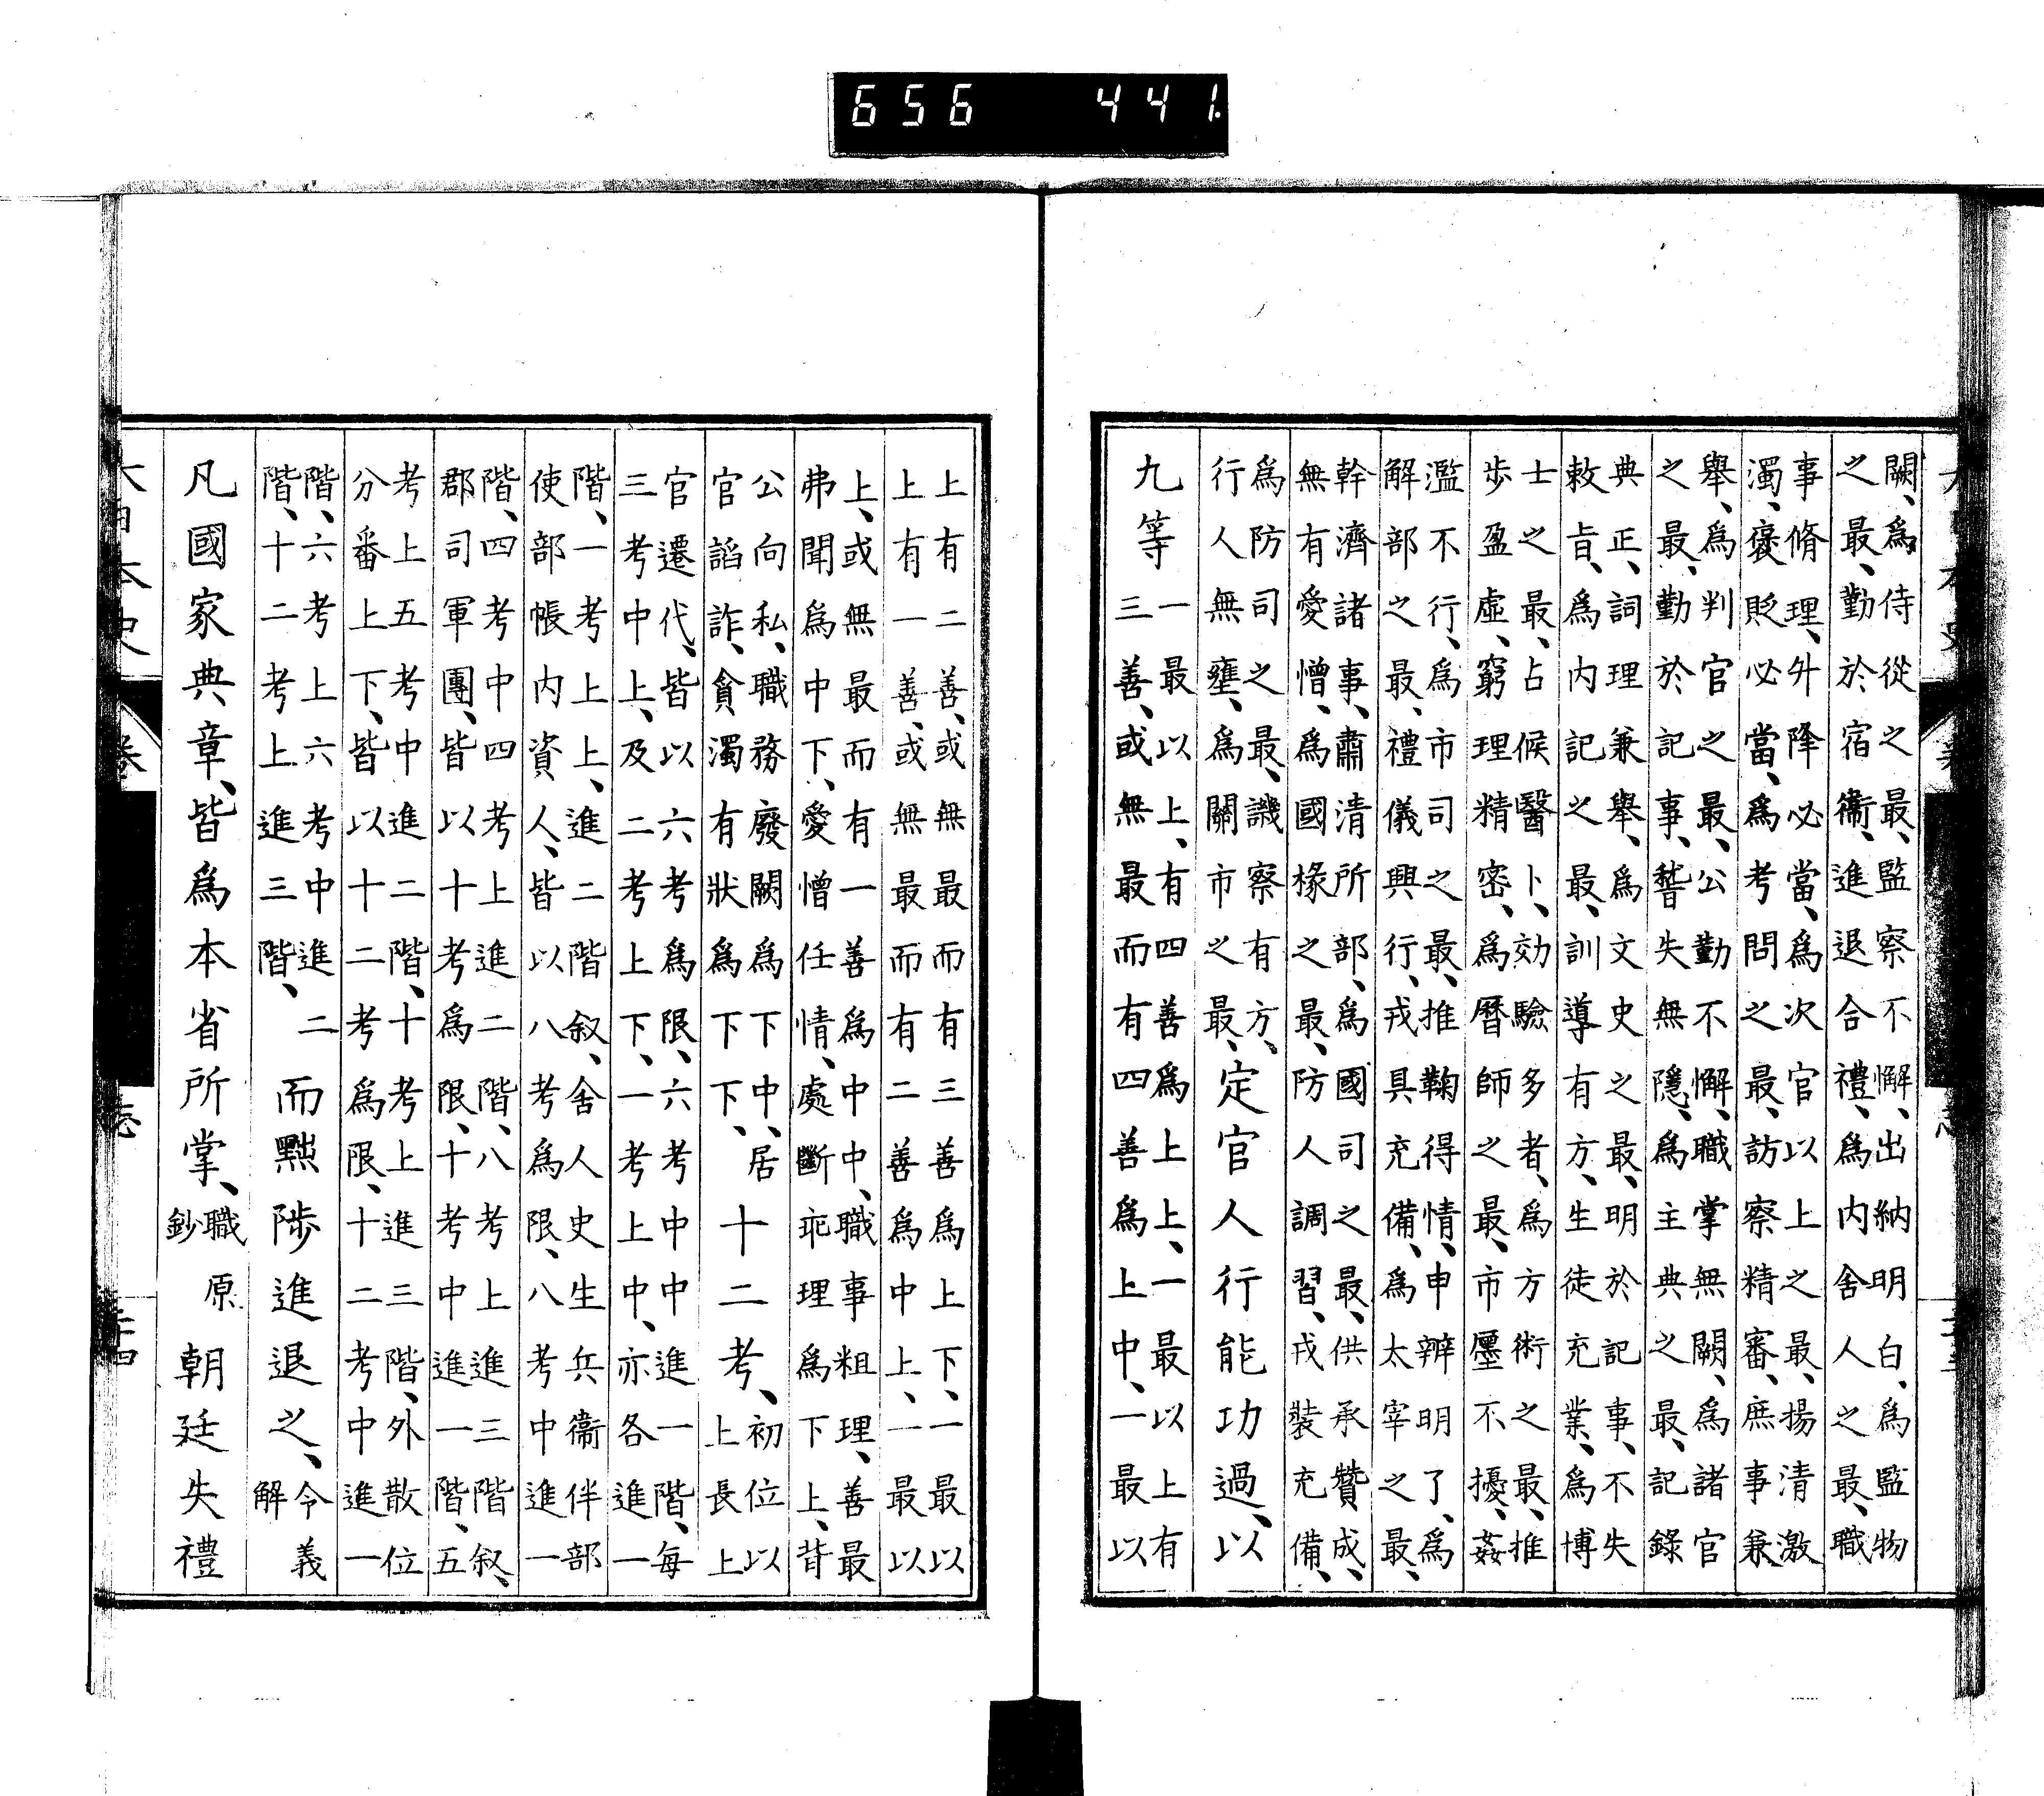 656 441.
闕、爲侍從之最、監察不懈、出納明白、爲監物
之最、勤於宿衞、進退合禮、爲內舍人之最、職
事脩理、升降必當、爲次官以上之最、揚清激
濁、褒貶必當、爲考問之最、訪察精審、庶事兼
舉、爲判官之最、公勤不懈、職掌無闕、爲諸官
之最、勤於記事、稽失無隱、爲主典之最、記錄
典正、詞理兼舉、爲文史之最、明於記事、不失
敕旨、爲內記之最、訓導有方、生徒充業、爲博
士之最、占候醫卜、効驗多者、爲方術之最、推
歩盈虛、窮理精密、爲曆師之最、市廛不擾、姦
濫不行、爲市司之最、推鞠得情、申辨明了、爲
解部之最、禮儀興行、戎具充備、爲太宰之最、
幹濟諸事、肅清所部、爲國司之最、供承贊成、
無有愛憎、爲國掾之最、防人調習、戎裝充備、
爲防司之最、譏察有方、
行人無壅、爲關市之最、
定官人行能功過、以
九等
一最以上、有四善爲上上、一最以上有
三善、或無最而有四善爲上中、一最以
上有二善、或無最而有三善爲上下、一最以
上有一善、或無最而有二善爲中上、一最以
上、或無最而有一善爲中中、職事粗理、善最
弗聞爲中下、愛憎任情、處斷乖理爲下上、背
公向私、職務廢闕爲下中、居
官諂詐、貪濁有狀爲下下、
十二考、
初位以
上長上
官遷代、皆以六考爲限、六考中中進一階、每
三考中上、及二考上下、一考上中、亦各進一
階、一考上上、進二階叙、舍人史生兵衞伴部
使部帳內資人、皆以八考爲限、八考中進一
階、四考中四考上進二階、八考上進三階叙、
郡司軍團、皆以十考爲限、十考中進一階、五
考上五考中進二階、十考上進三階、外散位
分番上下、皆以十二考爲限、十二考中進一
階、六考上六考中進二
階、十二考上進三階、
而黜陟進退之、
令義
解
凡國家典章、皆爲本省所掌、
職原
鈔
朝廷失禮
大日本史
卷
志
二十四